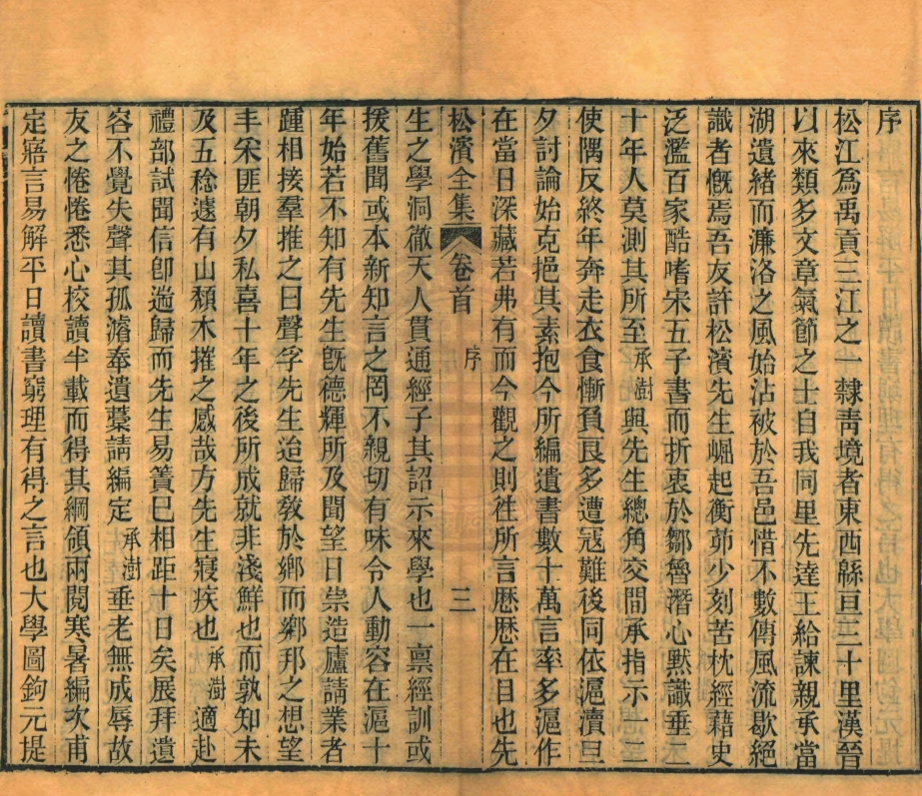 序
松江爲禹貢三江之一隸靑境者東西緜亘三十里漢晉
以來類多文章氣節之士自我同里先達王給諫親承當
湖遺緒而濂洛之風始沾被於吾邑惜不數傳風流歇絕
識者慨焉吾友許松濱先生崛起衡茆少刻苦枕經藉史
泛濫百家酷嗜宋五子書而折衷於鄒魯潛心默識垂二
十年人莫測其所至承澍與先生總角交間承指示一二
使隅反終年奔走衣食慚負良多遭寇難後同依滬瀆旦
夕討論始克挹其素抱今所編遺書數十萬言率多滬作
在當日深藏若弗有而今觀之則徃所言厯厯在目也先
松濱全集 卷首 序 三
生之學洞徹天人貫通經子其詔示來學也一禀經訓或
援舊聞或本新知言之罔不親切有味令人動容在滬十
年始若不知有先生旣德輝所及聞望日祟造廬請業者
踵相接羣推之曰聲孚先生迨歸敎於鄕而鄕邦之想望
丰采匪朝夕私喜十年之後所成就非淺鮮也而孰知未
及五稔遽有山頹木摧之感哉方先生寢疾也承澍適赴
禮部試聞信卽遄歸而先生易簀巳相距十日矣展拜遺
容不覺失聲其孤濬奉遺藁請編定承澍垂老無成辱故
友之惓惓悉心校讀半載而得其綱領兩閱寒暑編次甫
定寤言易解平日讀書窮理有得之言也大學圖鉤元提